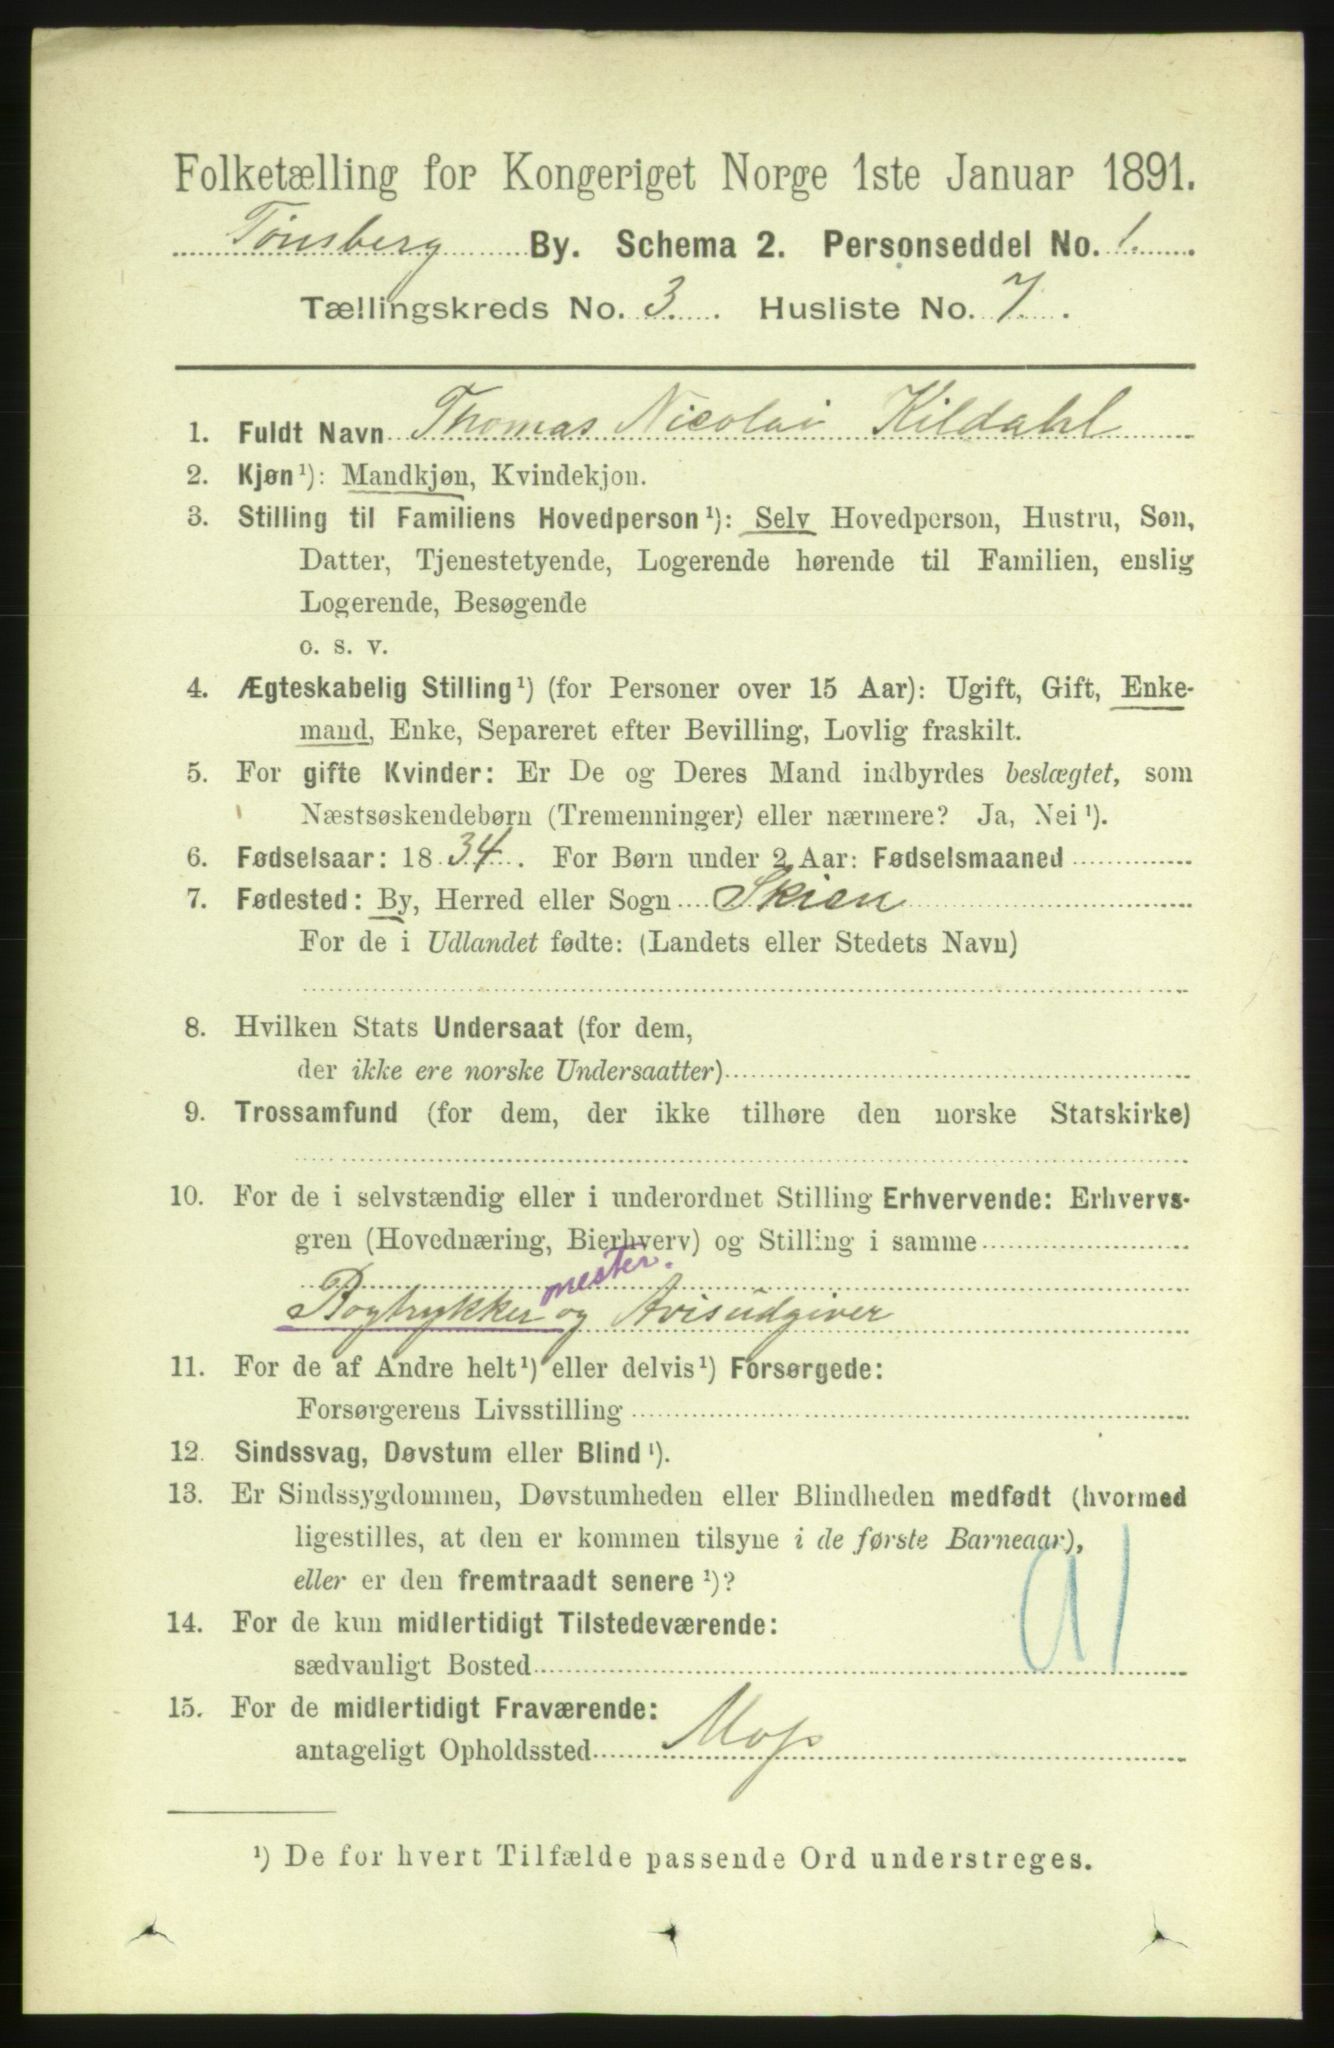 Folketælling for Kongeriget Norge 1ste Januar 1891.
Tønsberg By. Schema 2. Personseddel No. 1.
Tællingskreds No. 3. Husliste No. 7.
1. Fuldt Navn Thomas Nicolai Kildahl
2. Kjøn¹): Mandkjøn, Kvindekjøn.
3. Stilling til Familiens Hovedperson¹): Selv Hovedperson, Hustru, Søn,
Datter, Tjenestetyende, Logerende hørende til Familien, enslig
Logerende, Besøgende
o. s. v.
4. Ægteskabelig Stilling¹) (for Personer over 15 Aar): Ugift, Gift, Enke-
mand, Enke, Separeret efter Bevilling, Lovlig fraskilt.
5. For gifte Kvinder: Er De og Deres Mand indbyrdes beslægtet, som
Næstsøskendebørn (Tremenninger) eller nærmere? Ja, Nei¹).
6. Fødselsaar: 1834. For Børn under 2 Aar: Fødselsmaaned
7. Fødested: By, Herred eller Sogn Skien
For de i Udlandet fødte: (Landets eller Stedets Navn)
8. Hvilken Stats Undersaat (for dem,
der ikke ere norske Undersaatter)
9. Trossamfund (for dem, der ikke tilhøre den norske Statskirke)
10. For de i selvstændig eller i underordnet Stilling Erhvervende: Erhvervs-
gren (Hovednæring, Bierhverv) og Stilling i samme
mester.
Bogtrykker og Avisudgiver
11. For de af Andre helt¹) eller delvis¹) Forsørgede:
Forsørgerens Livsstilling
12. Sindssvag, Døvstum eller Blind¹).
13. Er Sindssygdommen, Døvstumheden eller Blindheden medfødt (hvormed
ligestilles, at den er kommen tilsyne i de første Barneaar),
eller er den fremtraadt senere¹)?
14. For de kun midlertidigt Tilstedeværende:
sædvanligt Bosted
15. For de midlertidigt Fraværende:
antageligt Opholdssted Moss
¹) De for hvert Tilfælde passende Ord understreges.